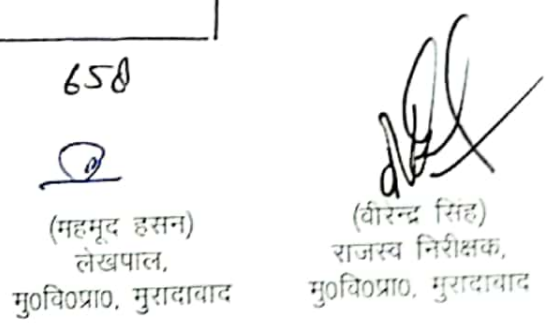 658
(महमूद हसन)
लेखपाल,
मु0वि0प्रा0, मुरादाबाद
(वीरेन्द्र सिंह)
राजस्व निरीक्षक,
मु0वि0प्रा0, मुरादाबाद